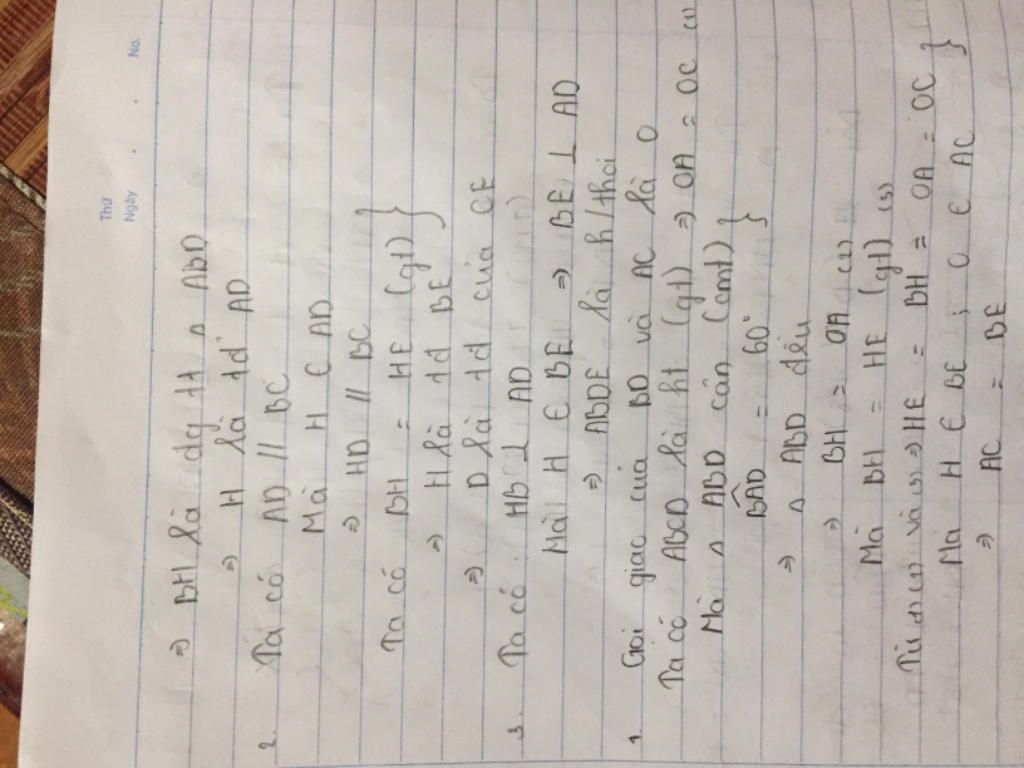 Thứ
Ngày No.
⇒ BH là dg tt △ ABD
⇒ H là tđ AD
2. Ta có AD // BC
Mà H ∈ AD
⇒ HD // BC
Ta có BH = HE (gt) }
⇒ H là tđ BE
⇒ D là tđ của CE
3. Ta có HB ⊥ AD
Mà H ∈ BE ⇒ BE ⊥ AD
⇒ ABDE là h/thoi
1 Gọi giao của BD và AC là O
Ta có ABCD là ht (gt) ⇒ OA = OC (1)
Mà △ ABD cân (cmt) }
BAD = 60°
⇒ △ ABD đều
⇒ BH = OA (2)
Mà BH = HE (gt) (3)
Từ (1) (2) và (3) ⇒ HE = BH = OA = OC }
Mà H ∈ BE ; O ∈ AC
⇒ AC = BE